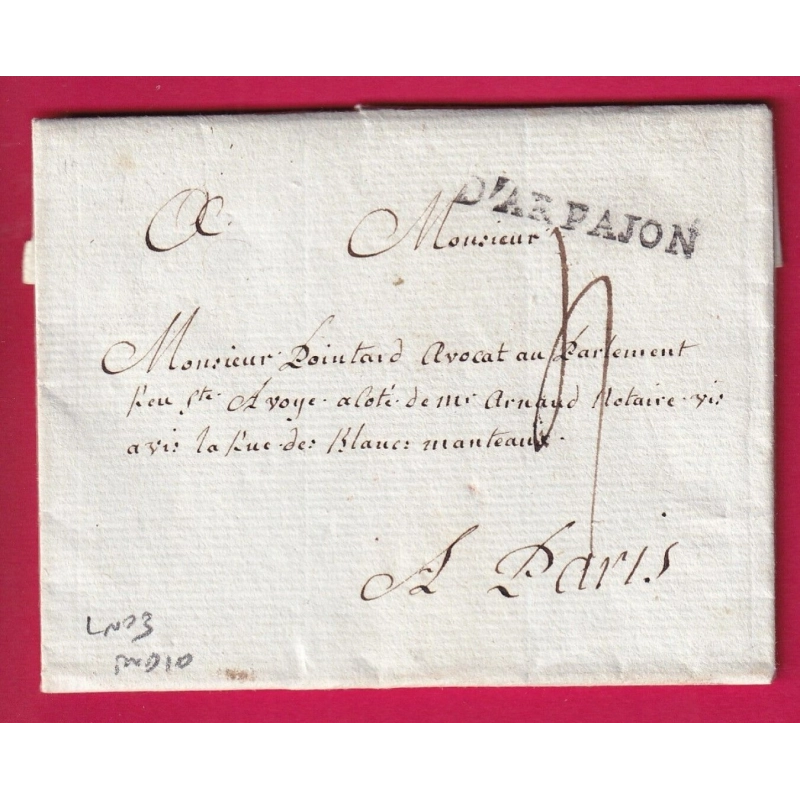 D'ARPAJON
A Monsieur
Monsieur Pointard Avocat au Parlement
Reu Ste Avoye a Coté de mr Arnaud Notaire vis
a vis la Rue des Blancs manteaux.
A Paris
LN03
ind10